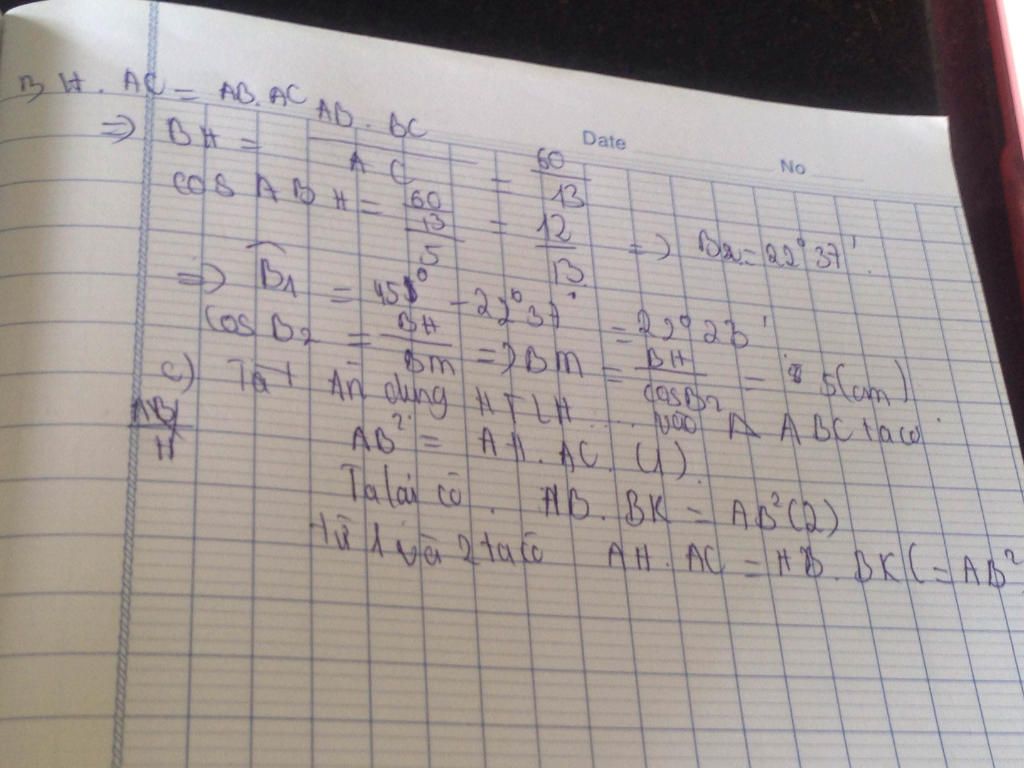 BH. AC = AB. AC
Date
No
⇒ BH = \frac{AB. BC}{AC} = \frac{60}{13}
cos ABH = \frac{\frac{60}{13}}{5} = \frac{12}{13} ⇒ B2 = 22°37'.
⇒ B1 = 45° - 22°37' = 22°23'
cos B2 = \frac{BH}{BM} ⇒ BM = \frac{BH}{cosB2} = 5(cm)
c) Ta Áp dụng HTLH ... vào Δ ABC ta có
AB² = AH. AC. (1).
Ta lại có. HB. BK = AB² (2)
từ 1 và 2 ta có AH. AC = HB. BK (= AB²